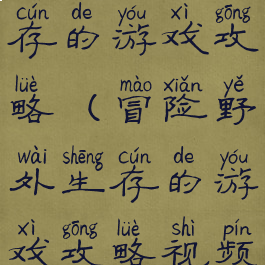 cún de yóu xì gōng
存的游戏攻
lüè mào xiǎn yě
略（冒险野
wài shēng cún de yóu
外生存的游
xì gōng lüè shì pín
戏攻略视频